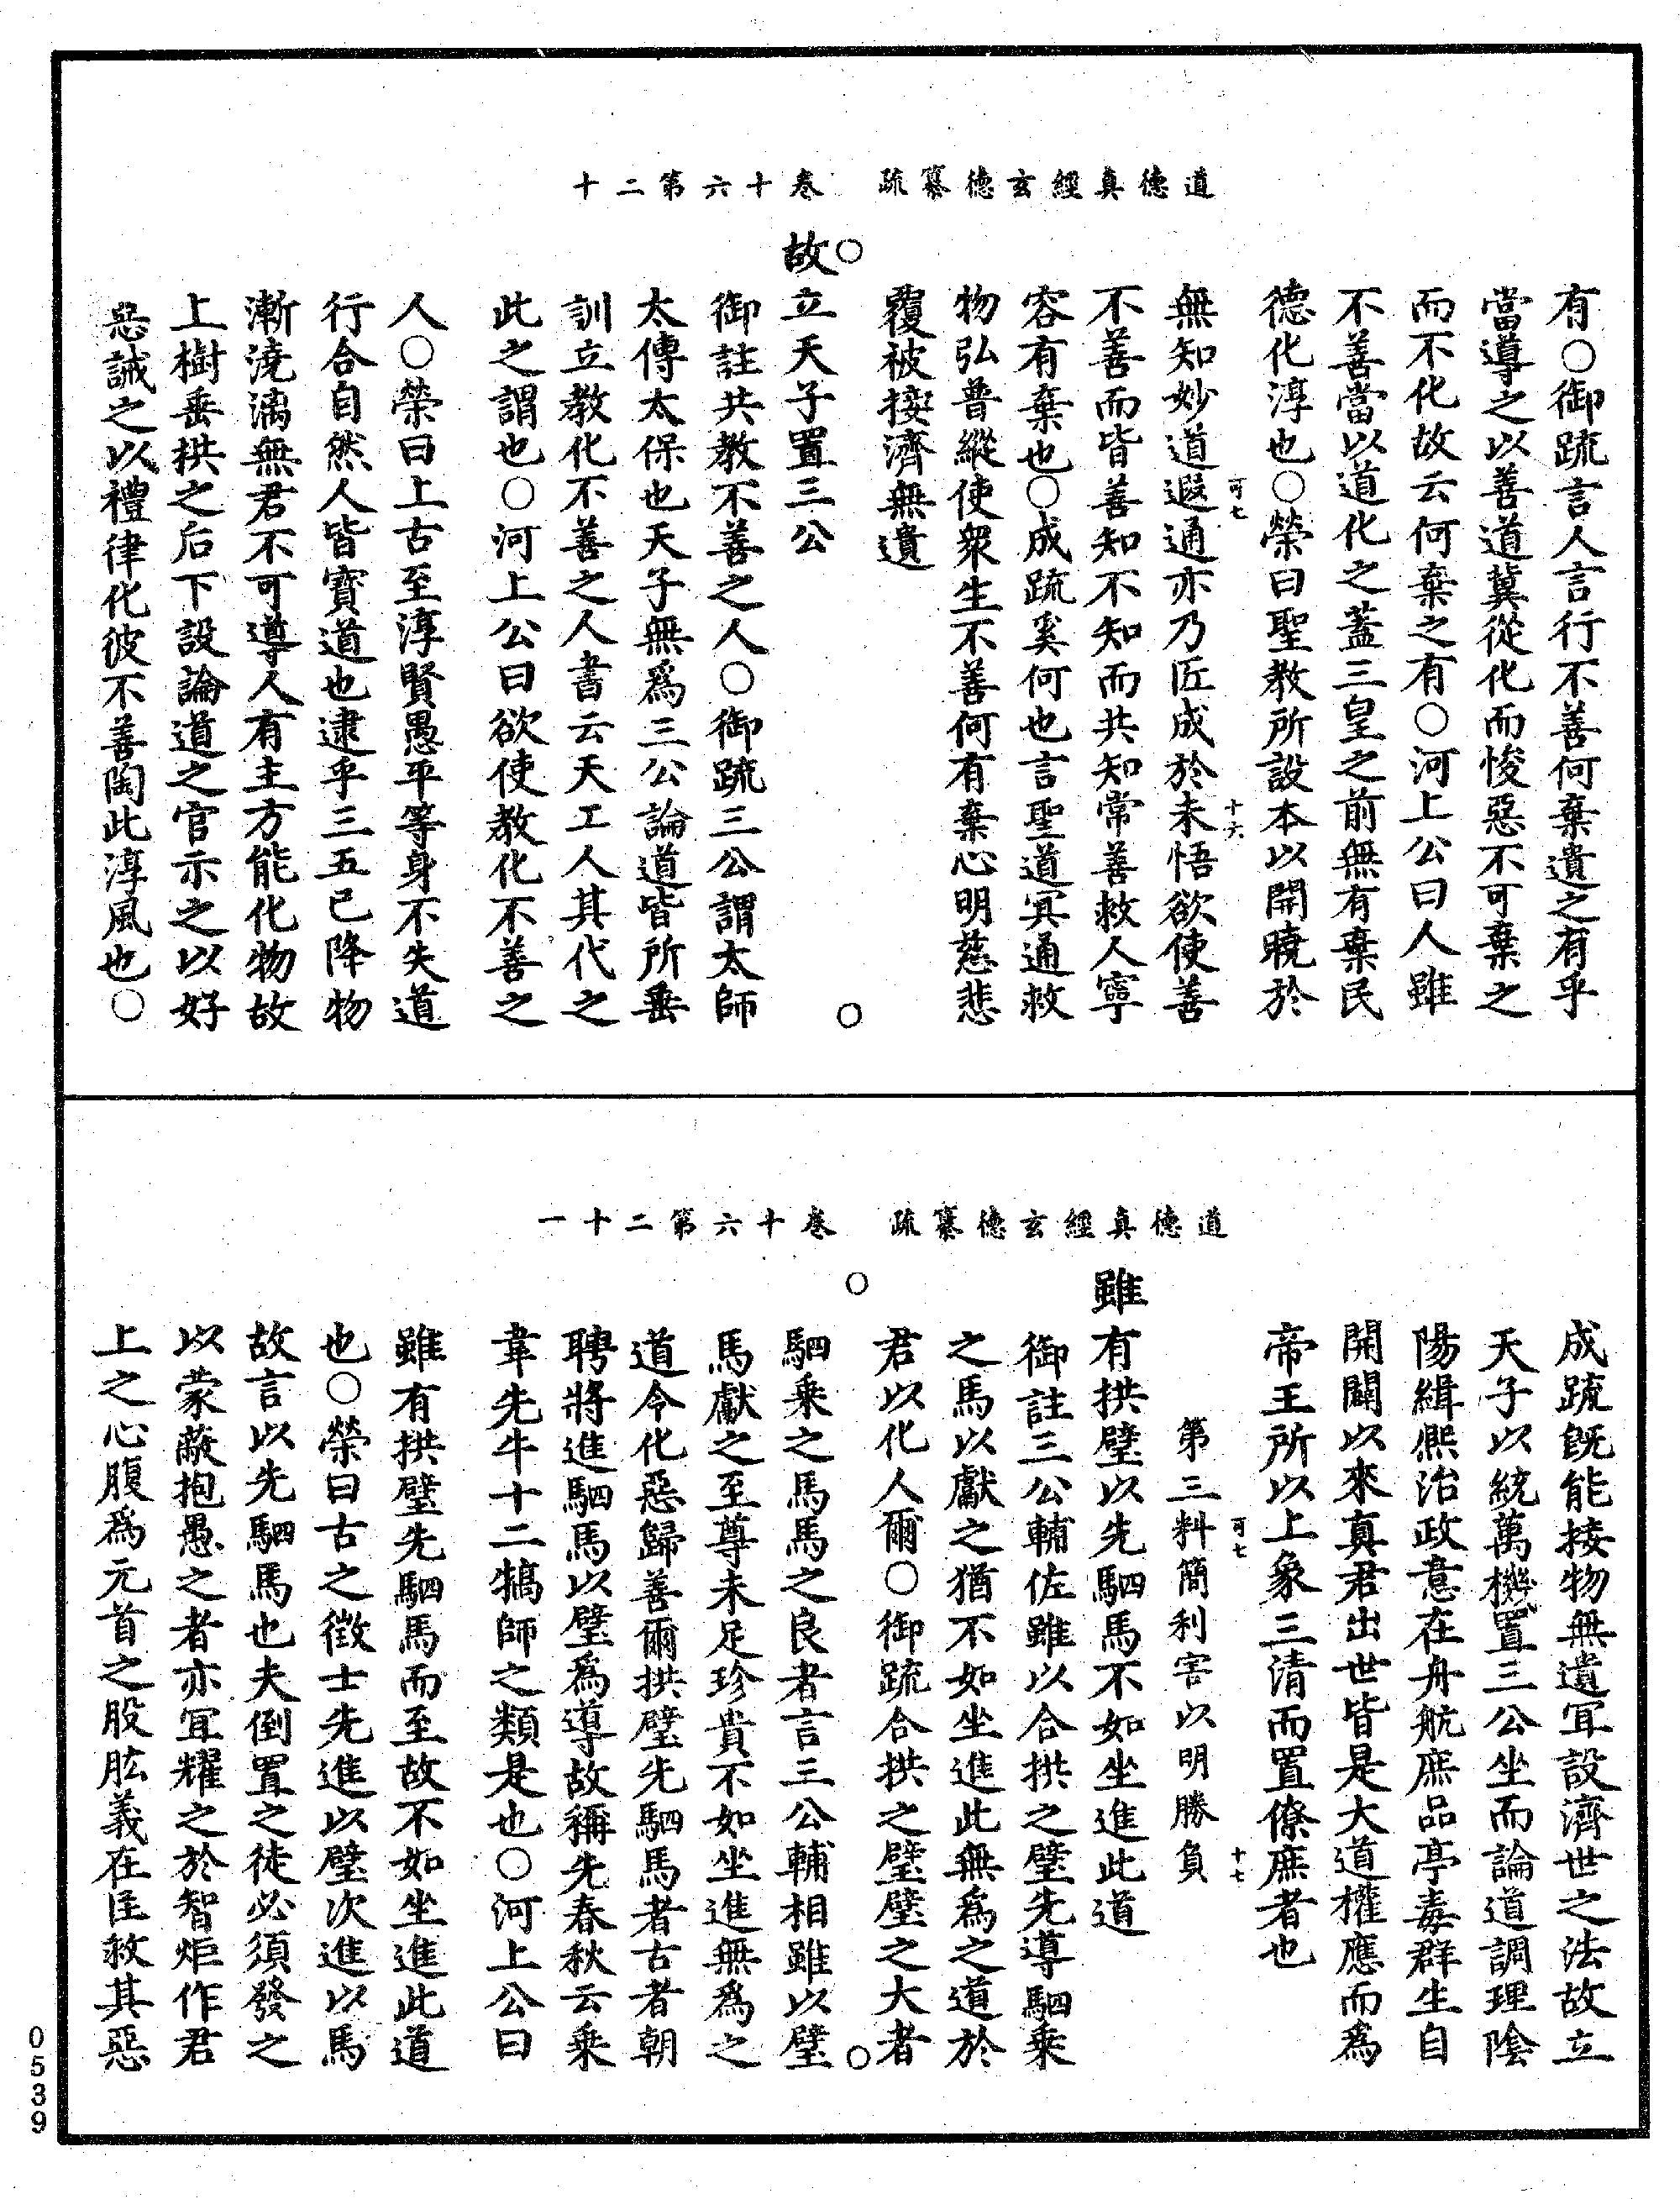 道德真經玄德纂疏　卷十六第二十
有○御疏言人言行不善何棄遺之有乎
當導之以善道冀從化而悛惡不可棄之
而不化故云何棄之有○河上公曰人雖
不善當以道化之蓋三皇之前無有棄民
德化淳也○榮曰聖教所設本以開曉於
可七　十六
無知妙道遐通亦乃匠成於未悟欲使善
不善而皆善知不知而共知常善救人寧
容有棄也○成疏奚何也言聖道冥通救
物弘普縱使衆生不善何有棄心明慈悲
覆被接濟無遺
○　○
故立天子置三公
御註共教不善之人○御疏三公謂太師
太傅太保也天子無爲三公論道皆所垂
訓立教化不善之人書云天工人其代之
此之謂也○河上公曰欲使教化不善之
人○榮曰上古至淳賢愚平等身不失道
行合自然人皆寶道也逮乎三五已降物
漸澆漓無君不可導人有主方能化物故
上樹垂拱之后下設論道之官示之以好
惡誡之以禮律化彼不善陶此淳風也○
道德真經玄德纂疏　卷十六第二十一
成疏既能接物無遺冝設濟世之法故立
天子以統萬機置三公坐而論道調理陰
陽緝熙治政意在舟航庶品亭毒群生自
開闢以來真君出世皆是大道權應而爲
帝王所以上象三清而置僚庶者也
可七　十七
第三料簡利害以明勝負
雖有拱璧以先駟馬不如坐進此道
御註三公輔佐雖以合拱之璧先導駟乘
之馬以獻之猶不如坐進此無爲之道於
君以化人爾○御疏合拱之璧璧之大者
○　○
駟乘之馬馬之良者言三公輔相雖以璧
馬獻之至尊未足珍貴不如坐進無爲之
道令化惡歸善爾拱璧先駟馬者古者朝
聘將進駟馬以璧爲導故稱先春秋云乘
韋先牛十二犒師之類是也○河上公曰
雖有拱璧先駟馬而至故不如坐進此道
也○榮曰古之徵士先進以璧次進以馬
故言以先駟馬也夫倒置之徒必須發之
以蒙蔽抱愚之者亦冝耀之於智炬作君
上之心腹爲元首之股肱義在匡救其惡
0539